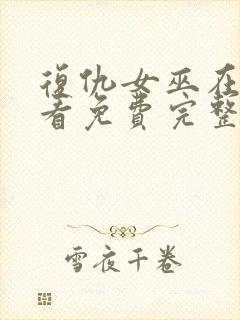 復仇女巫在
看免費完整
雪夜千卷